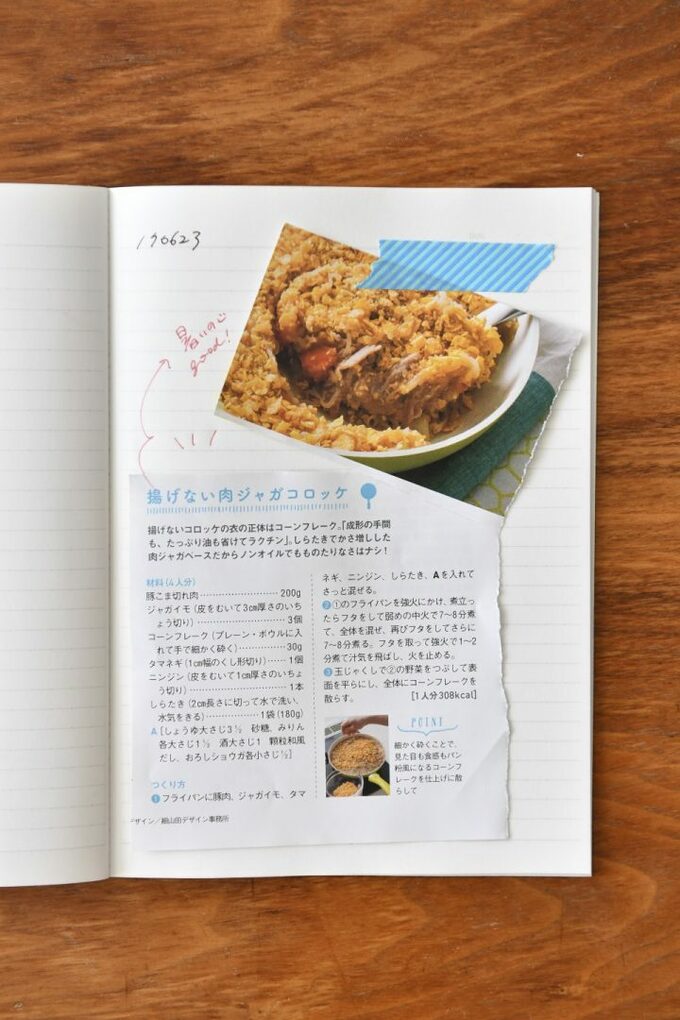 190623
暑いの心
good!
揚げない肉ジャガコロッケ
揚げないコロッケの衣の正体はコーンフレーク。「成形の手間
も、たっぷり油も省けてラクチン」。しらたきでかさ増しした
肉ジャガベースだからノンオイルでもものたりなさはナシ!
材料(4人分)
豚こま切れ肉 200g
ジャガイモ(皮をむいて3cm厚さのいち
ょう切り) 3個
コーンフレーク(プレーン・ボウルに入
れて手で細かく砕く) 30g
タマネギ(1cm幅のくし形切り) 1個
ニンジン(皮をむいて1cm厚さのいちょ
う切り) 1本
しらたき(2cm長さに切って水で洗い、
水気をきる) 1袋(180g)
A[しょうゆ大さじ3½ 砂糖、みりん
各大さじ1½ 酒大さじ1 顆粒和風
だし、おろしショウガ各小さじ½]
つくり方
①フライパンに豚肉、ジャガイモ、タマ
ネギ、ニンジン、しらたき、Aを入れて
さっと混ぜる。
②①のフライパンを強火にかけ、煮立っ
たらフタをして弱めの中火で7〜8分煮
て、全体を混ぜ、再びフタをしてさらに
7〜8分煮る。フタを取って強火で1〜2
分煮て汁気を飛ばし、火を止める。
③玉じゃくしで②の野菜をつぶして表
面を平らにし、全体にコーンフレークを
散らす。 [1人分308kcal]
POINT
細かく砕くことで、
見た目も食感もパン
粉風になるコーンフ
レークを仕上げに散
らして
デザイン/細山田デザイン事務所